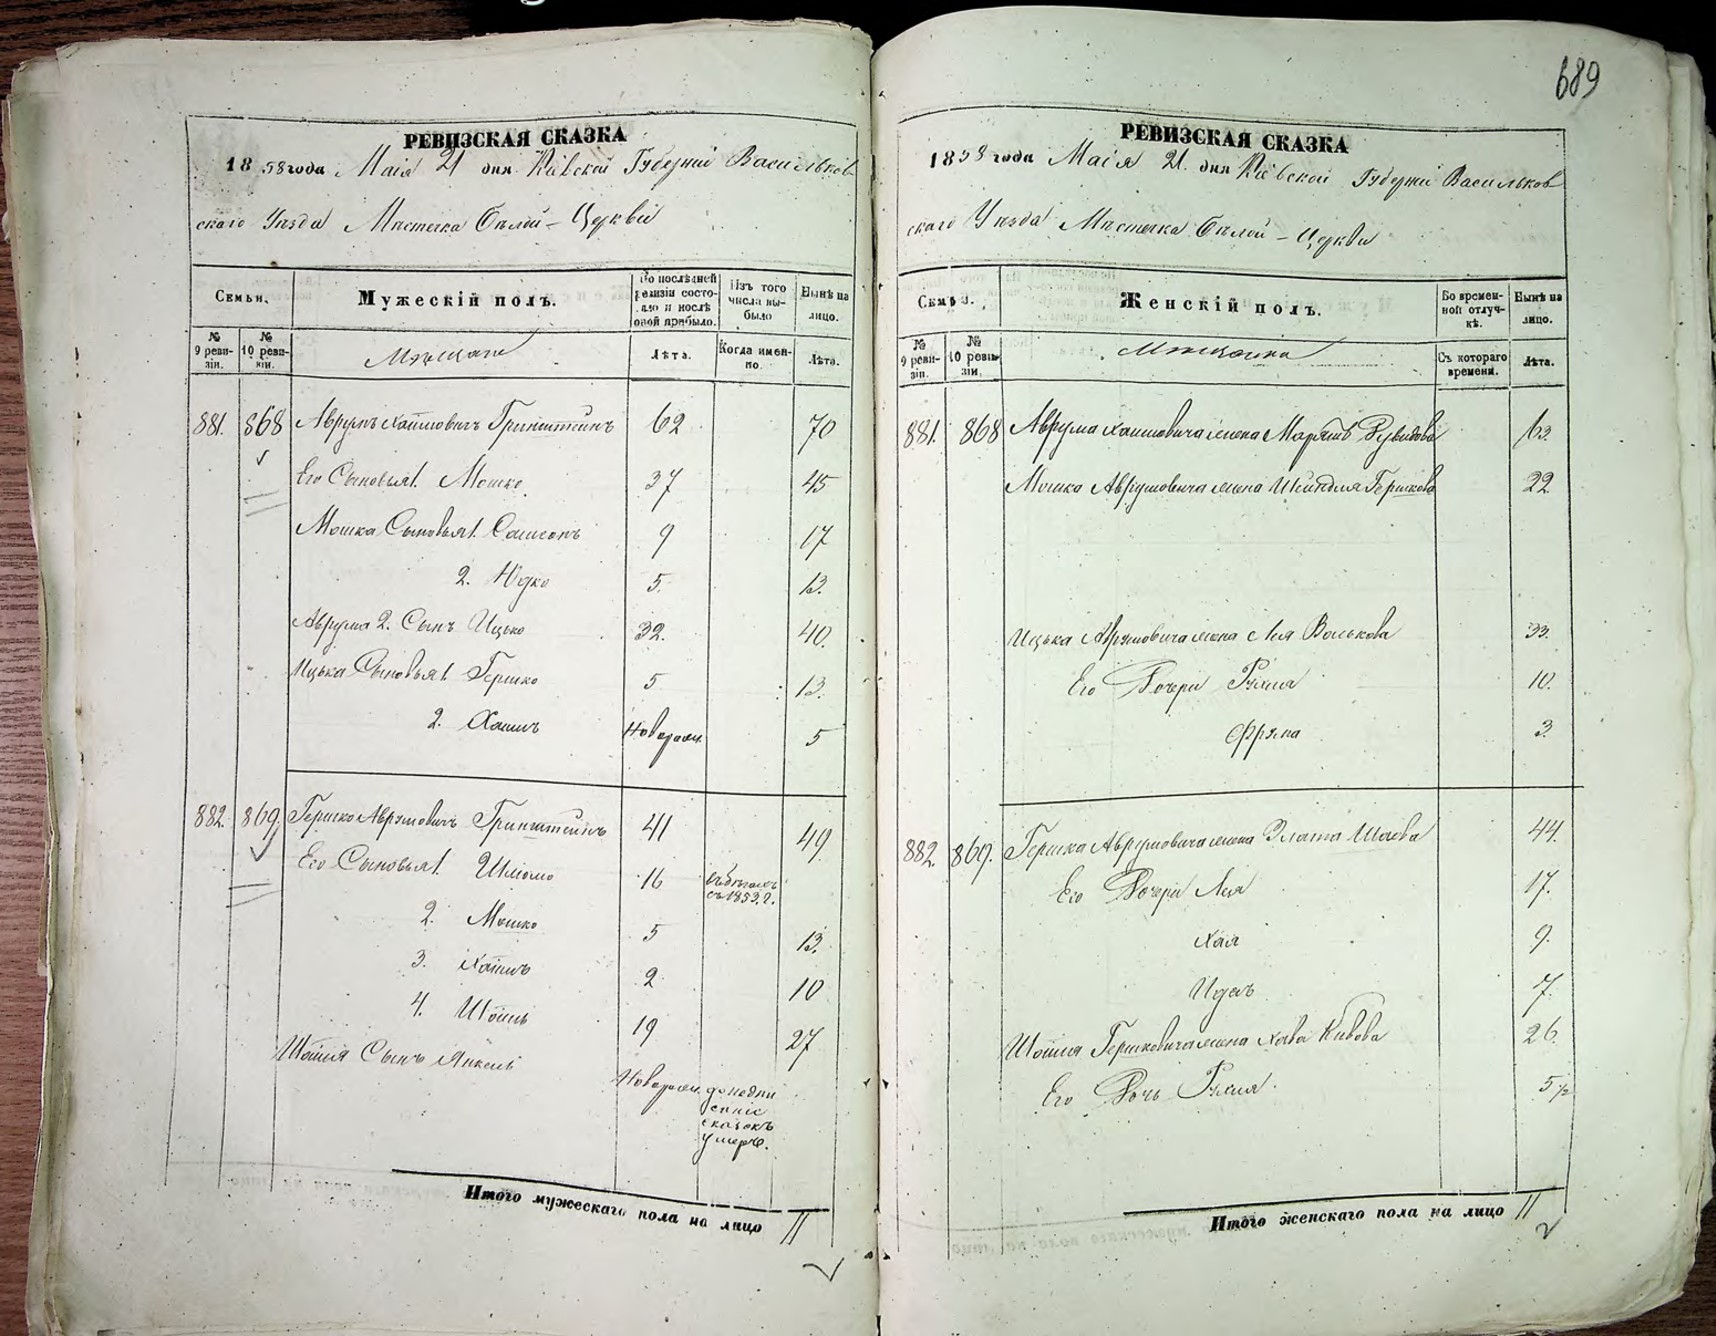 689
РЕВИЗСКАЯ СКАЗКА
1858 года Маія 21 дня Кіевской Губерніи Васильков
скаго Уѣзда Мѣстечка Бѣлой-Церкви
Семьи.
Мужескій полъ.
По послѣдней ревизіи состояло и послѣ оной прибыло.
Изъ того числа выбыло
Нынѣ на лицо.
№ 9 ревизіи.
№ 10 ревизіи.
Мѣщане
Лѣта.
Когда именно.
Лѣта.
881. 868 Аврумъ Хаимовичъ Гринштеинъ 62 70
Его Сыновья 1. Мошко 37 45
Мошка Сыновья 1. Самсонъ 9 17
2. Юдко 5. 13.
Аврума 2. Сынъ Ицько 32. 40.
Ицька Сыновья 1. Гершко 5 13.
2. Хаимъ Новорожд. 5
882. 869. Гершко Аврумовичъ Гринштеинъ 41 49.
Его Сыновья 1. Шломо 16 въ бѣгахъ съ 1853 г.
2. Мошко 5 13.
3. Хаимъ 2 10
4. Шоиль 19 27
Шоиля Сынъ Янкель Новорожд. до подачи сказокъ умеръ.
Итого мужескаго пола на лицо 11
РЕВИЗСКАЯ СКАЗКА
1858 года Маія 21. дня Кіевской Губерніи Васильков
скаго Уѣзда Мѣстечка Бѣлой-Церкви
Семьи.
Женскій полъ.
Во временной отлучкѣ.
Нынѣ на лицо.
№ 9 ревизіи.
№ 10 ревизіи.
Мѣщанки
Съ котораго времени.
Лѣта.
881. 868 Аврума Хаимовича жена Маріямъ Рувидова 63.
Мошка Аврумовича жена Шеиндля Гершкова 22
Ицька Аврумовича жена Лея Волькова 33.
Его Дочери Рухля 10.
Фрума 3.
882. 869. Гершка Аврумовича жена Злата Шаева 44.
Его Дочери Лея 17.
Хая 9.
Идесъ 7.
Шоиля Гершковича жена Хава Кивова 26.
Его Дочь Рухля. 5 ½
Итого женскаго пола на лицо 11